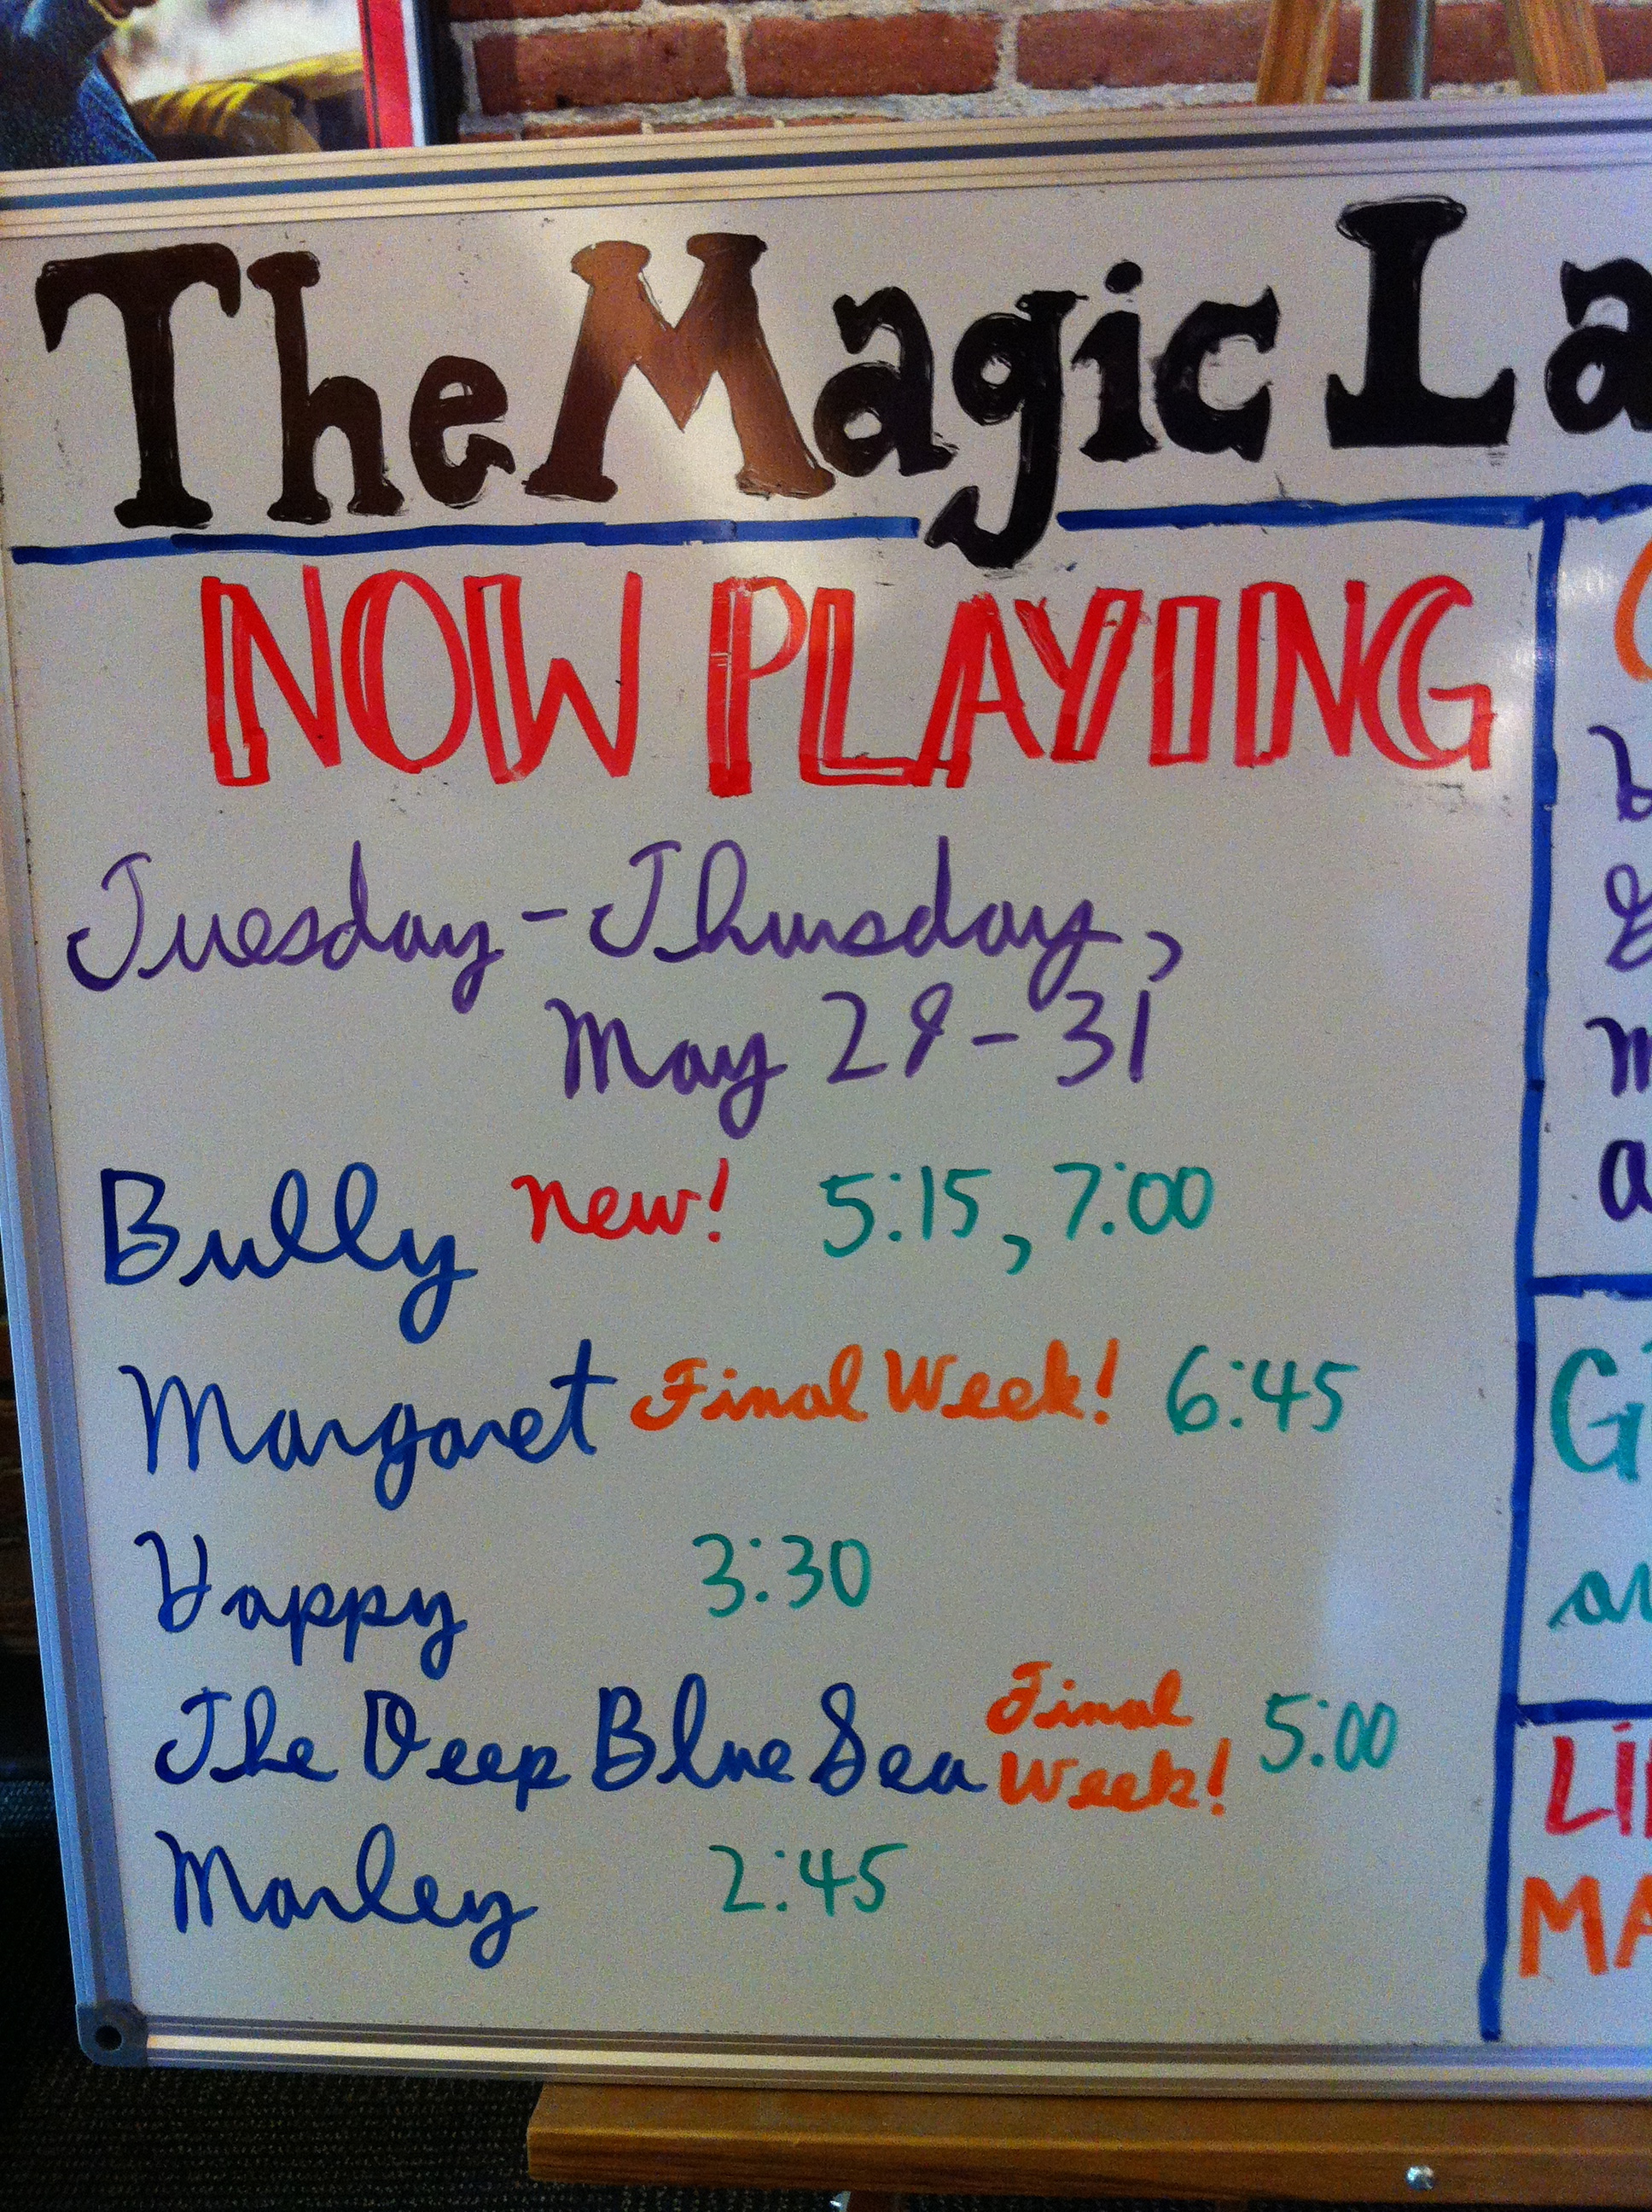 The Magic La
NOW PLAYING
Tuesday - Thursday,
May 29 - 31
Bully new! 5:15, 7:00
Margaret Final Week! 6:45
Happy 3:30
The Deep Blue Sea Final Week! 5:00
Marley 2:45
G
a
LI
MA